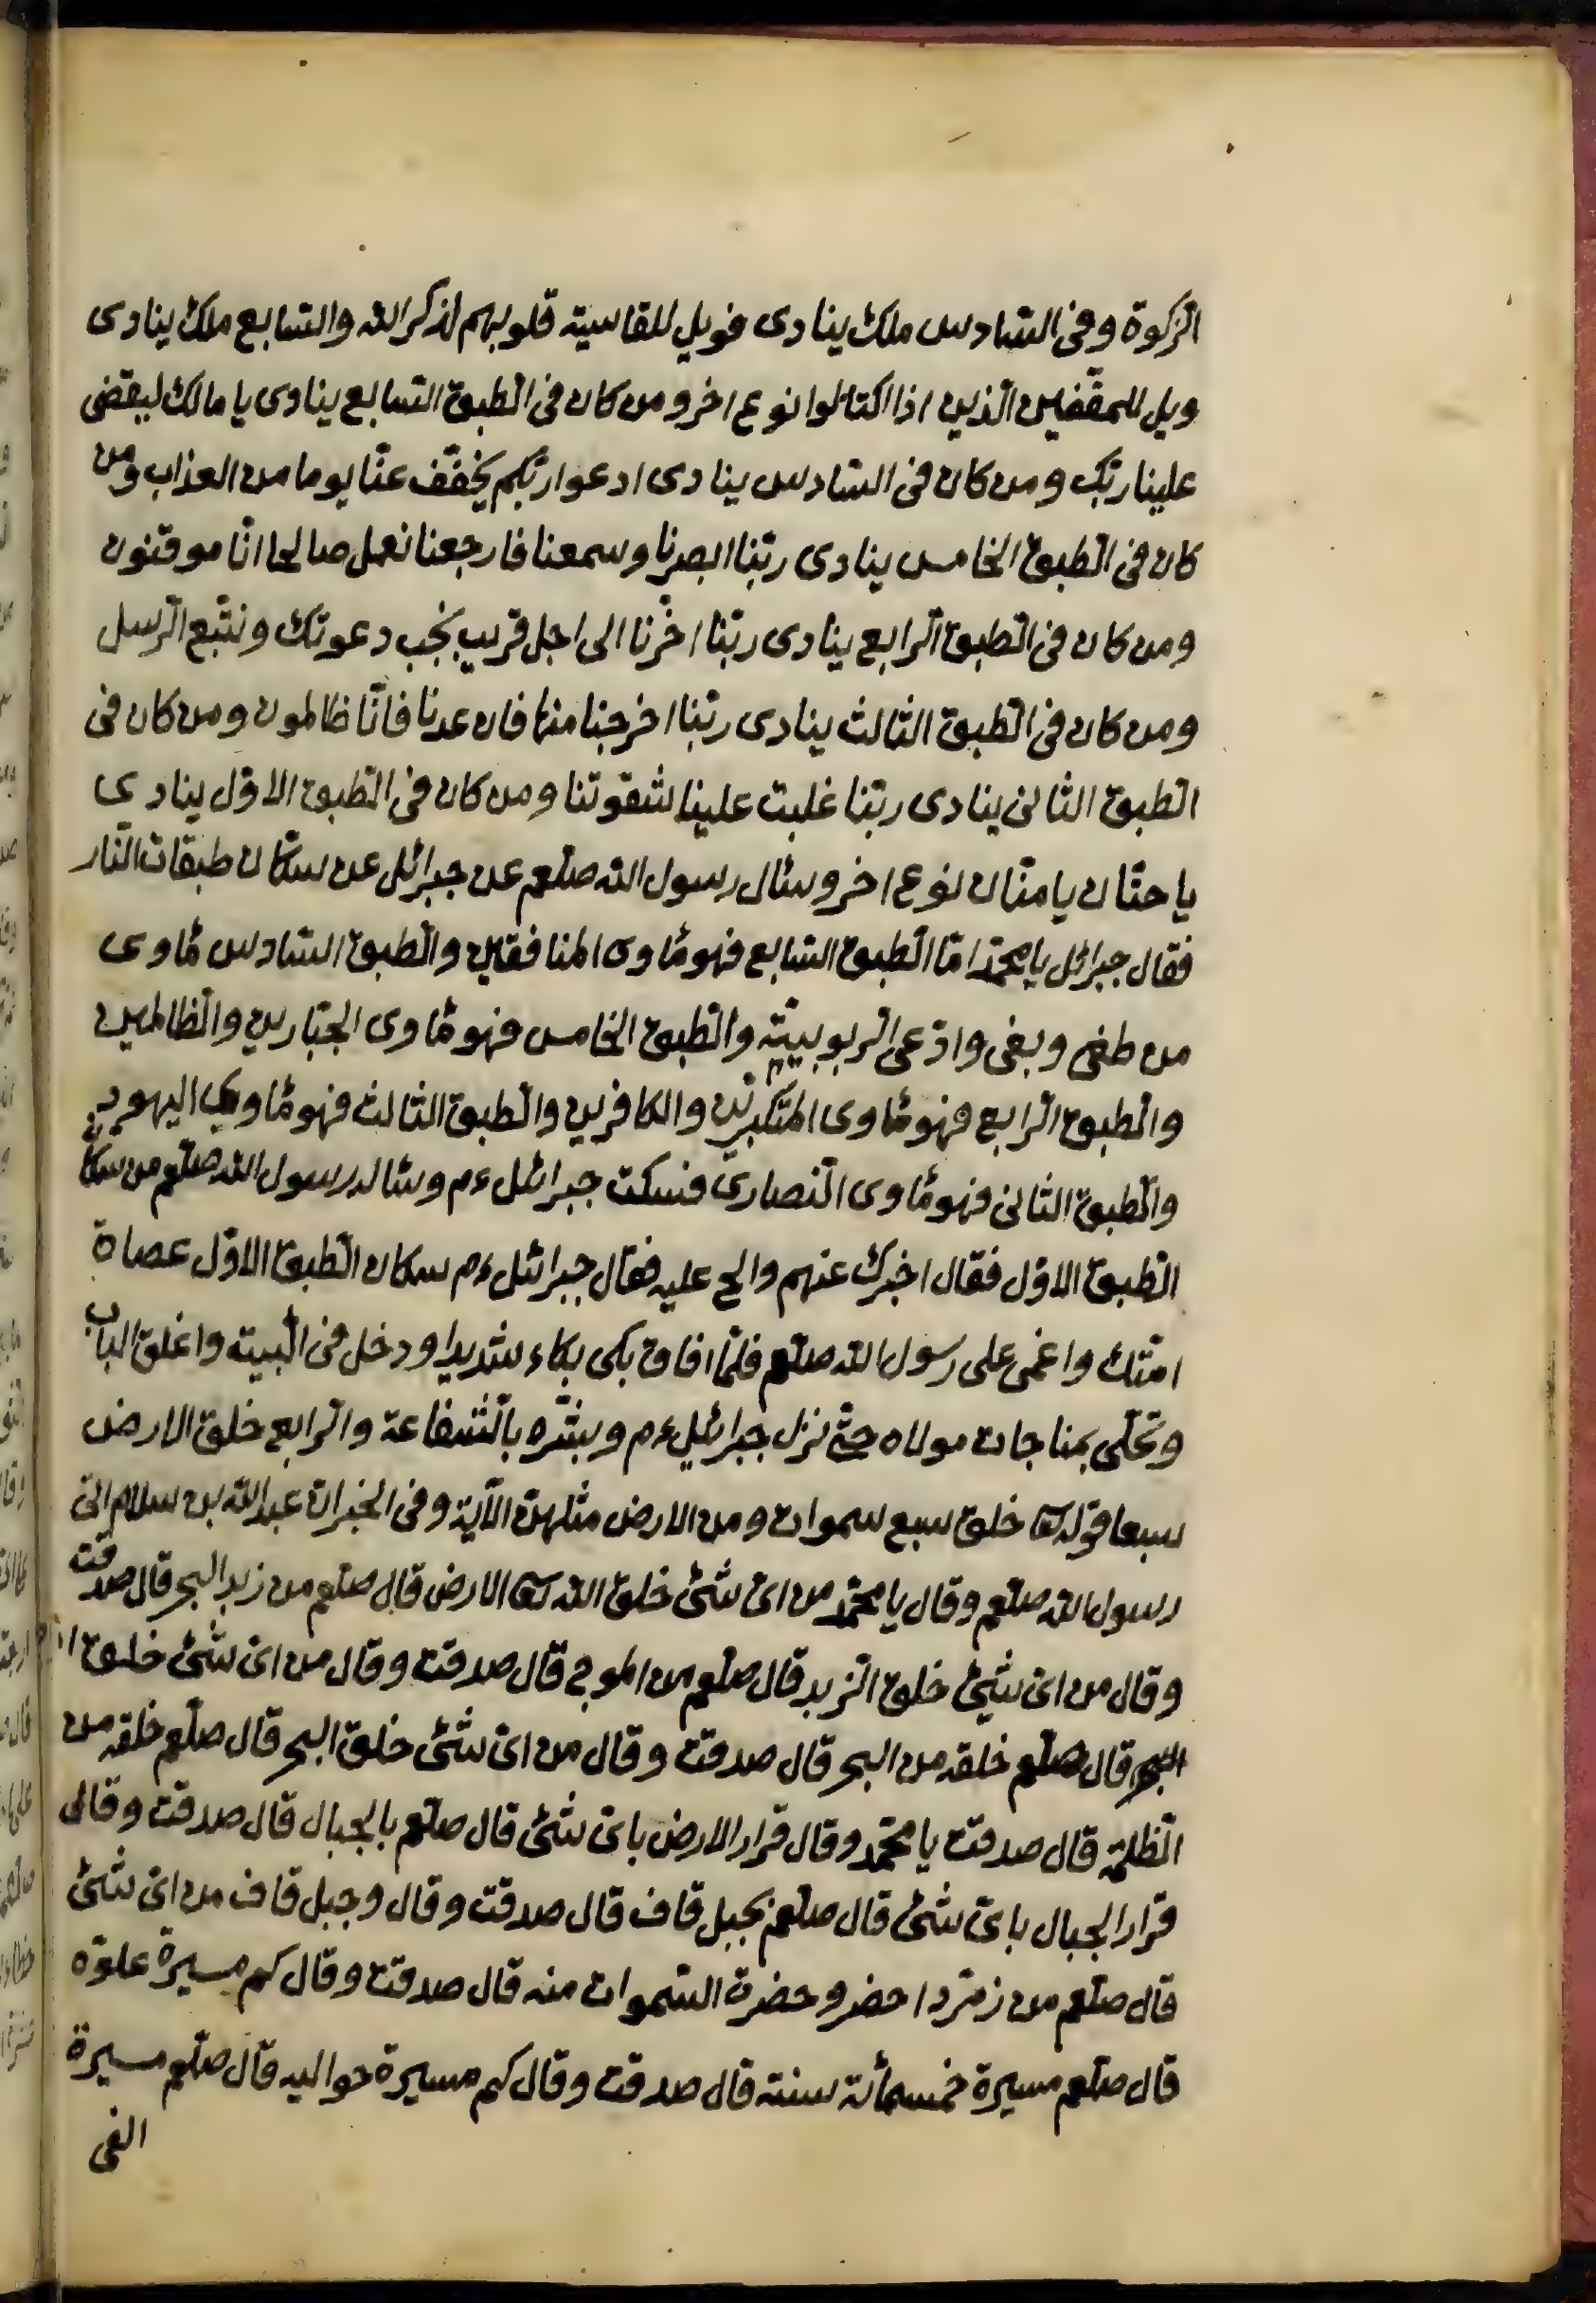 الزكوة وفى السّادس ملك ينادى فويل للقاسية قلوبهم لذكر الله والسّابع ملك ينادى
ويل للمقففين الّذين اذا اكتالوا نوع اخر ومن كان فى الطبق السّابع ينادى يا مالك ليقض
علينا ربّك ومن كان فى السّادس ينادى ادعوا ربّكم يخفّف عنّا يوما من العذاب ومن
كان فى الطّبق الخامس ينادى ربّنا ابصرنا وسمعنا فارجعنا نعمل صالحا انّا موقنون
ومن كان فى الطّبق الرّابع ينادى ربّنا اخّرنا الى اجل قريب نجب دعوتك ونتّبع الرّسل
ومن كان فى الطّبق الثالث ينادى ربّنا اخرجنا منها فان عدنا فانّا ظالمون ومن كان فى
الطّبق الثانى ينادى ربّنا غلبت علينا شقوتنا ومن كان فى الطّبق الاوّل ينادي
يا حنّان يا منّان نوع اخر وسئال رسول الله صلعم عن جبرائل عن سكّان طبقات النّار
فقال جبرائل يا محمّد امّا الطّبق السّابع فهو مأوى المنافقين والطّبق السّادس مأوى
من طغى وبغى وادّعى الرّبوبيّة والطّبق الخامس فهو مأوى الجبّارين والظّالمين
والطّبق الرّابع فهو مأوى المتكبّرين والكافرين والطّبق الثالث فهو مأوى اليهود
والطّبق الثانى فهو مأوى النّصارى فسكت جبرائل ءم وسئاله رسول الله صلعم من سكان
الطّبق الاوّل فقال اخبرك عنهم والح عليه فقال جبرائل ءم سكان الطّبق الاوّل عصاة
امّتك واغمى على رسول الله صلعم فلمّا افاق بكى بكاء شديدا ودخل فى البيته واغلق الباب
وتخلّى بمناجات مولاه حتّى نزل جبرائيل ءم وبشّره بالشّفاعة والرّابع خلق الارض
سبعا قوله تع خلق سبع سموات ومن الارض مثلهن الآية وفى الخبر ان عبد الله بن سلام اتى
رسول الله صلعم وقال يا محمّد من اىّ شئ خلق الله تع الارض قال صلعم من زبد البحر قال صدقت
وقال من اىّ شئ خلق الزّبد قال صلعم من الموج قال صدقت وقال من اىّ شئ خلق
قال صلعم خلقه من البحر قال صدقت وقال من اىّ شئ خلق البحر قال صلعم خلقه من
الظّلمة قال صدقت يا محمّد وقال قرار الارض باىّ شئ قال صلعم بالجبال قال صدقت وقال
قرار الجبال باىّ شئ قال صلعم بجبل قاف قال صدقت وقال وجبل قاف من اىّ شئ
قال صلعم من زمّرد احضر وحضرة السّموات منه قال صدقت وقال كم مسيرة علوّه
قال صلعم مسيرة خمسمأئة سنته قال صدقت وقال كم مسيرة حواليه قال صلعم مسيرة
الفى